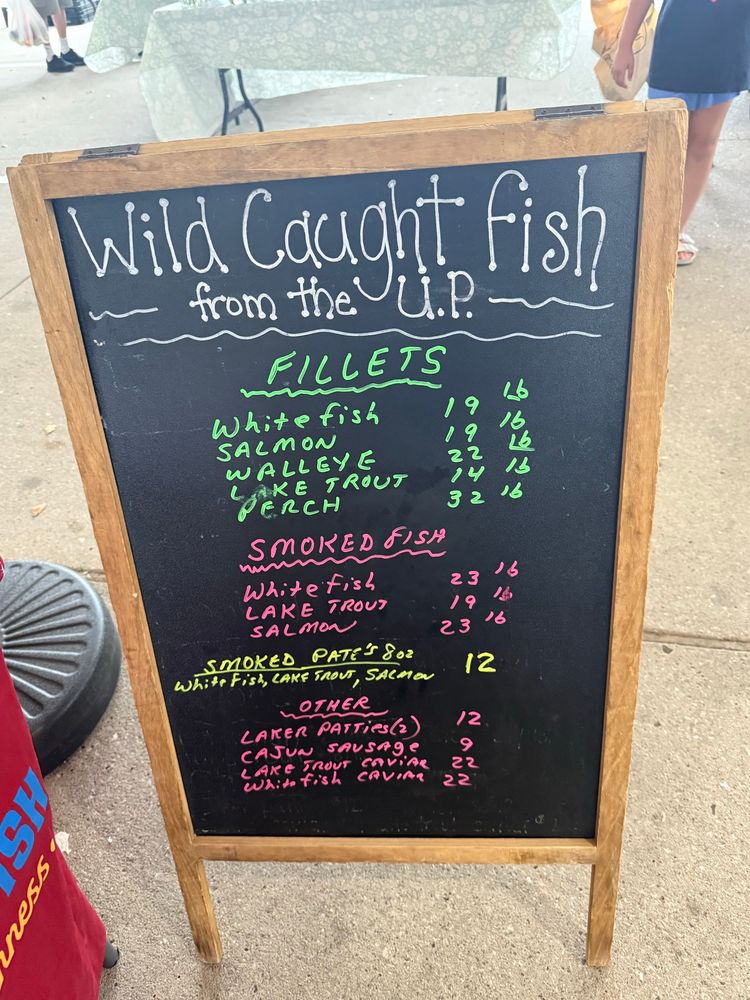 Wild Caught fish
from the U.P.
FILLETS
Whitefish 19 lb
SALMON 19 lb
WALLEYE 22 lb
LAKE TROUT 14 lb
PERCH 32 lb
SMOKED FISH
Whitefish 23 lb
LAKE TROUT 19 lb
SALMON 23 lb
SMOKED PATE'S 8oz 12
Whitefish, LAKE TROUT, SALMON
OTHER
LAKER PATTIES(2) 12
CAJUN SAUSAGE 9
LAKE TROUT CAVIAR 22
Whitefish CAVIAR 22